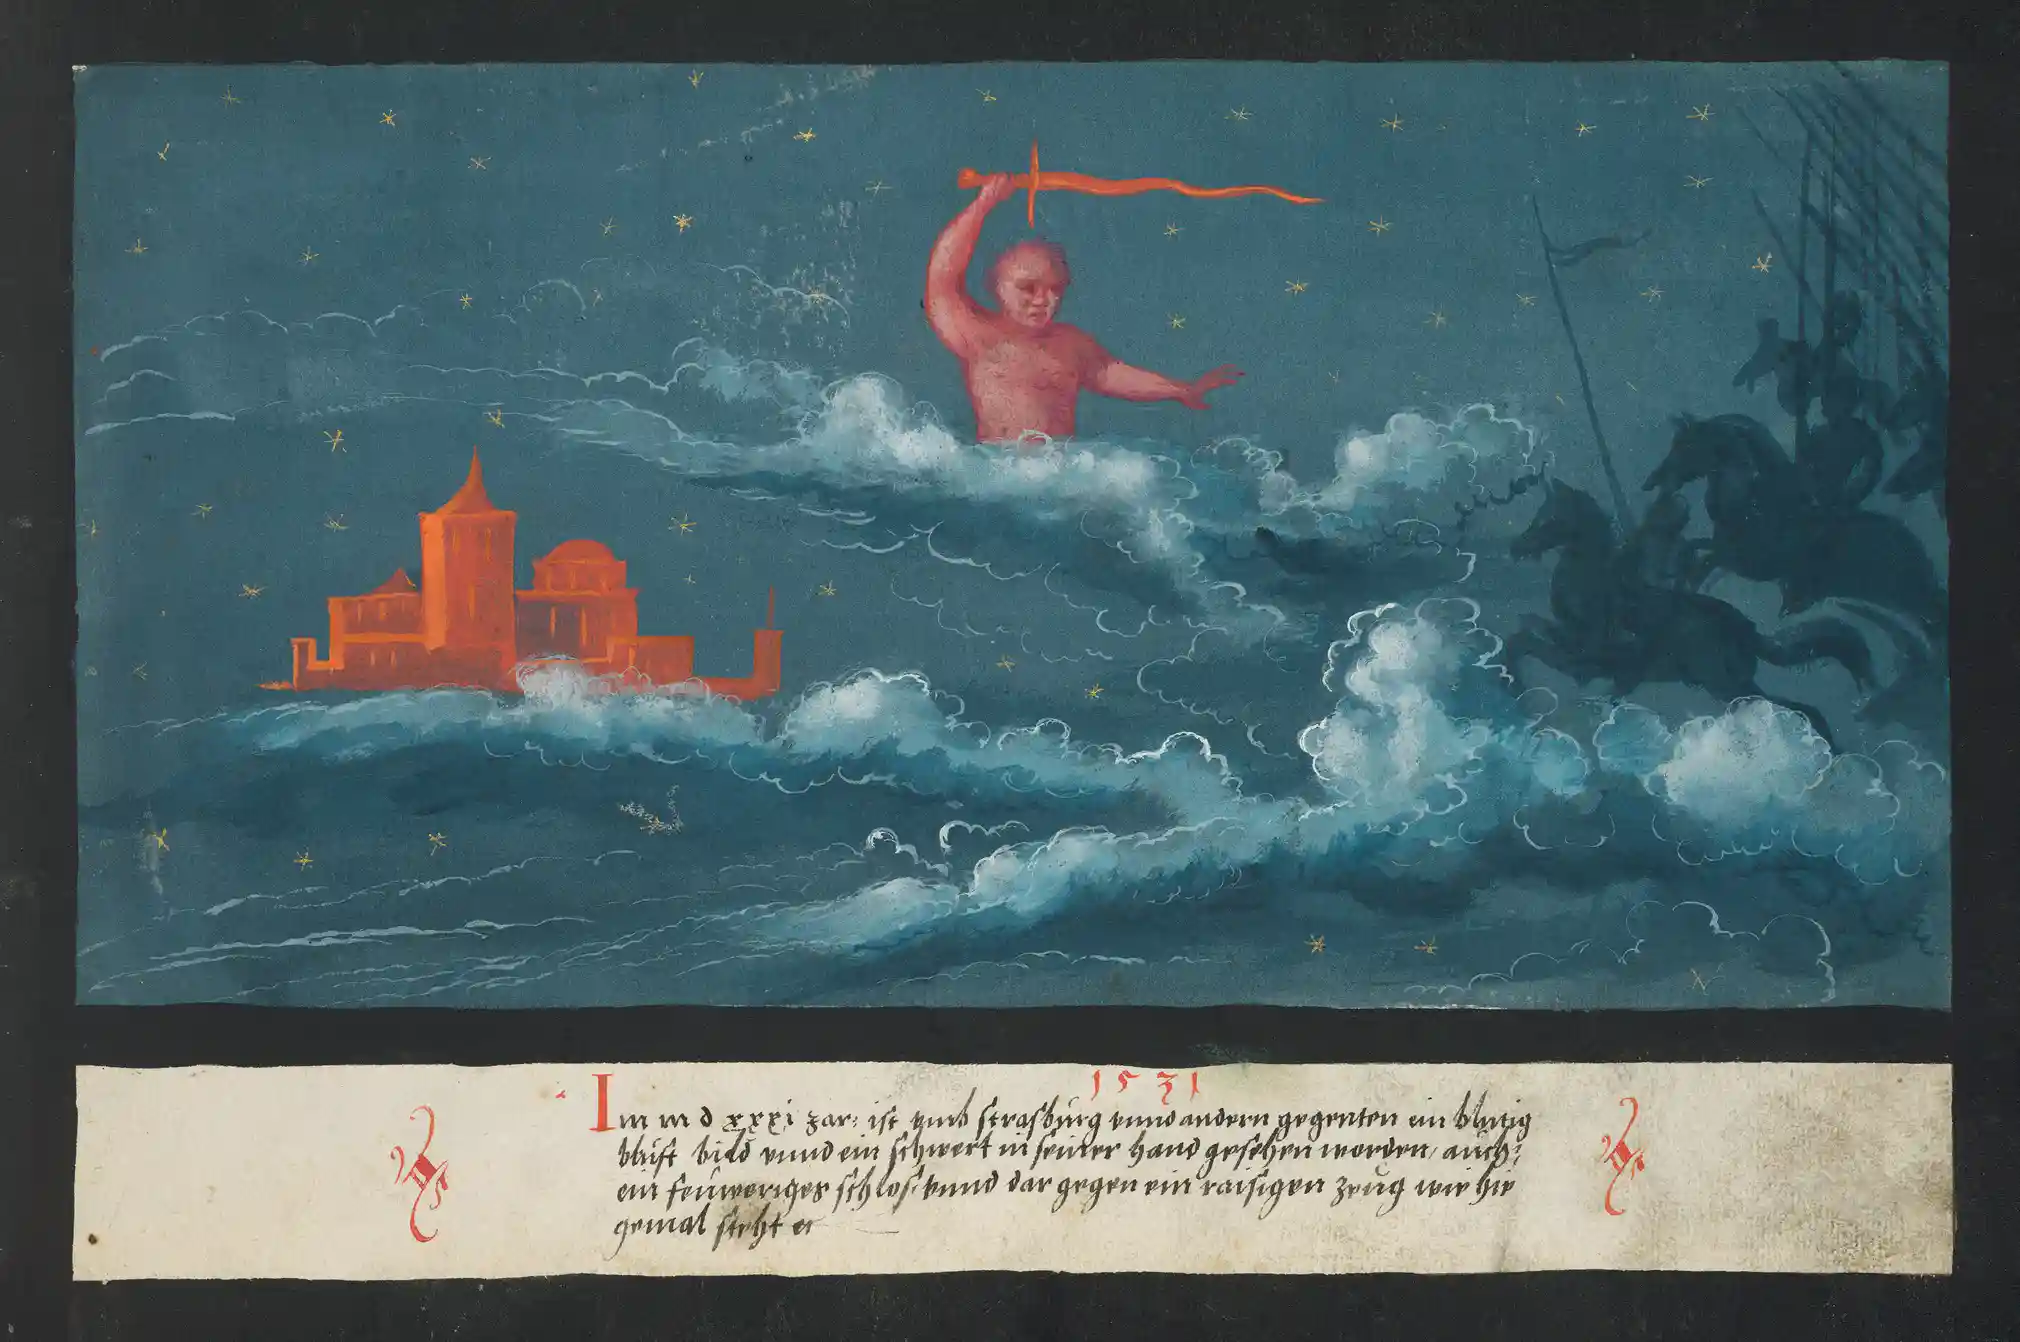 1531
Im m d xxxi Jar: ist vmb strasburg vnnd andern gegenten ein blutig
brust bild vnnd ein schwert in seiner hand gesehen worden/ auch:
ein feuweriges schlos/ vnnd dar gegen ein raisigen zeug wie hie
gemal steht ec